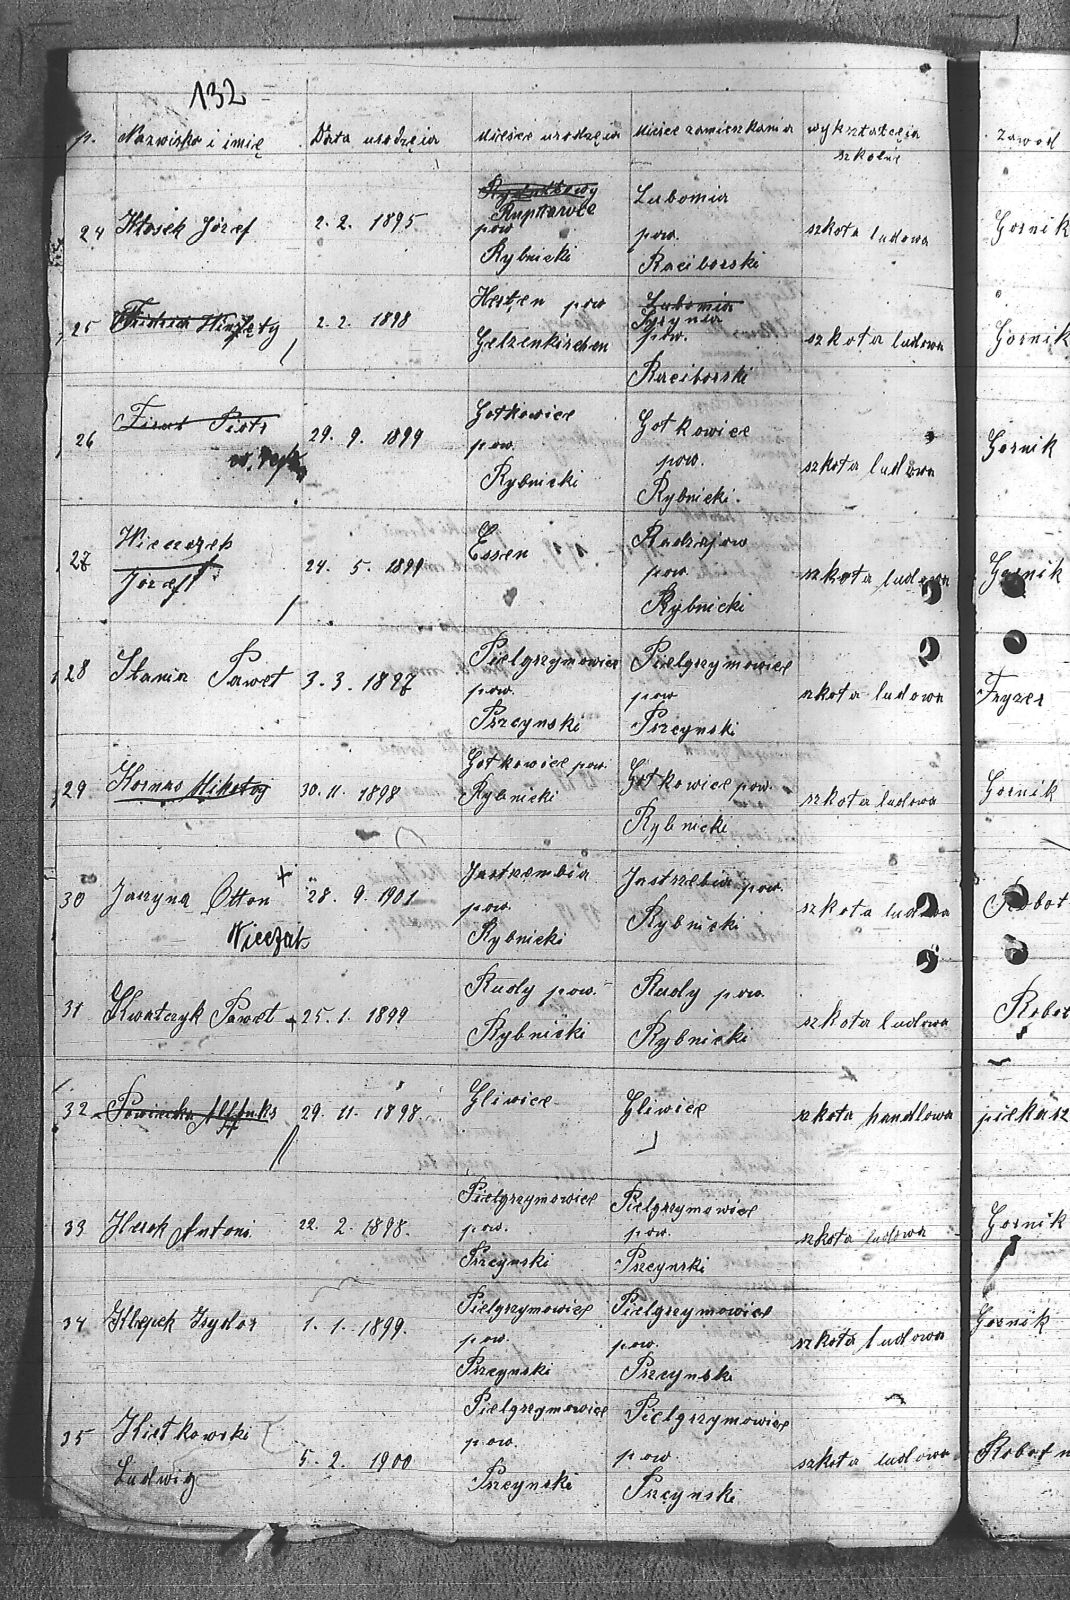 132
p. Nazwisko i imię Data urodzęia Miejsce urodzęia Miejsce zamieszkania wykształcęia szkolne zawod
24 Kłosek Józef 2. 2. 1895 Ruptawce pow Rybnicki Lubomia pow. Raciborski szkoła ludowa Gornik
25 2. 2. 1898 Herten pow Gelzenkirchen Lubomia pow. Raciborski szkoła ludowa Gornik
26 Piotr 29. 9. 1899 Gołkowice pow. Rybnicki Gołkowice pow. Rybnicki. szkoła ludowa Gornik
27 Wieczorek Józef 24. 5. 1899 Essen Radziejow pow. Rybnicki szkoła ludowa Gornik
28 Stania Paweł 3. 3. 1897 Pielgrzymowice pow. Pszczynski Pielgrzymowice pow Pszczynski szkoła ludowa Fryzer
29 Kornas Mikołaj 30. 11. 1898 Gołkowice pow. Rybnicki Gołkowice pow. Rybnicki szkoła ludowa Gornik
30 Jarzyna Otton + 28. 9. 1901 Jastrzembia pow. Rybnicki Jastrzebia pow. Rybnicki szkoła ludowa Robot
31 Kwatczyk Paweł + 25. 1. 1899 Rudy pow. Rybnicki Rudy pow. Rybnicki szkoła ludowa Robot
32 29. 11. 1898. Gliwice Gliwice szkoła handlowa piekasz
33 Antoni 22. 2. 1898. Pielgrzymowice pow. Pszczynski Pielgrzymowice pow. Pszczynski szkoła ludowa Gornik
34 Klepek Izydor 1. 1. 1899. Pielgrzymowice pow. Pszczynski Pielgrzymowice pow. Pszczynski szkoła ludowa Gornik
35 Kietkowski Ludwig 5. 2. 1900 Pielgrzymowice pow. Pszczynski Pielgrzymowice pow. Pszczynski szkoła ludowa Robotn